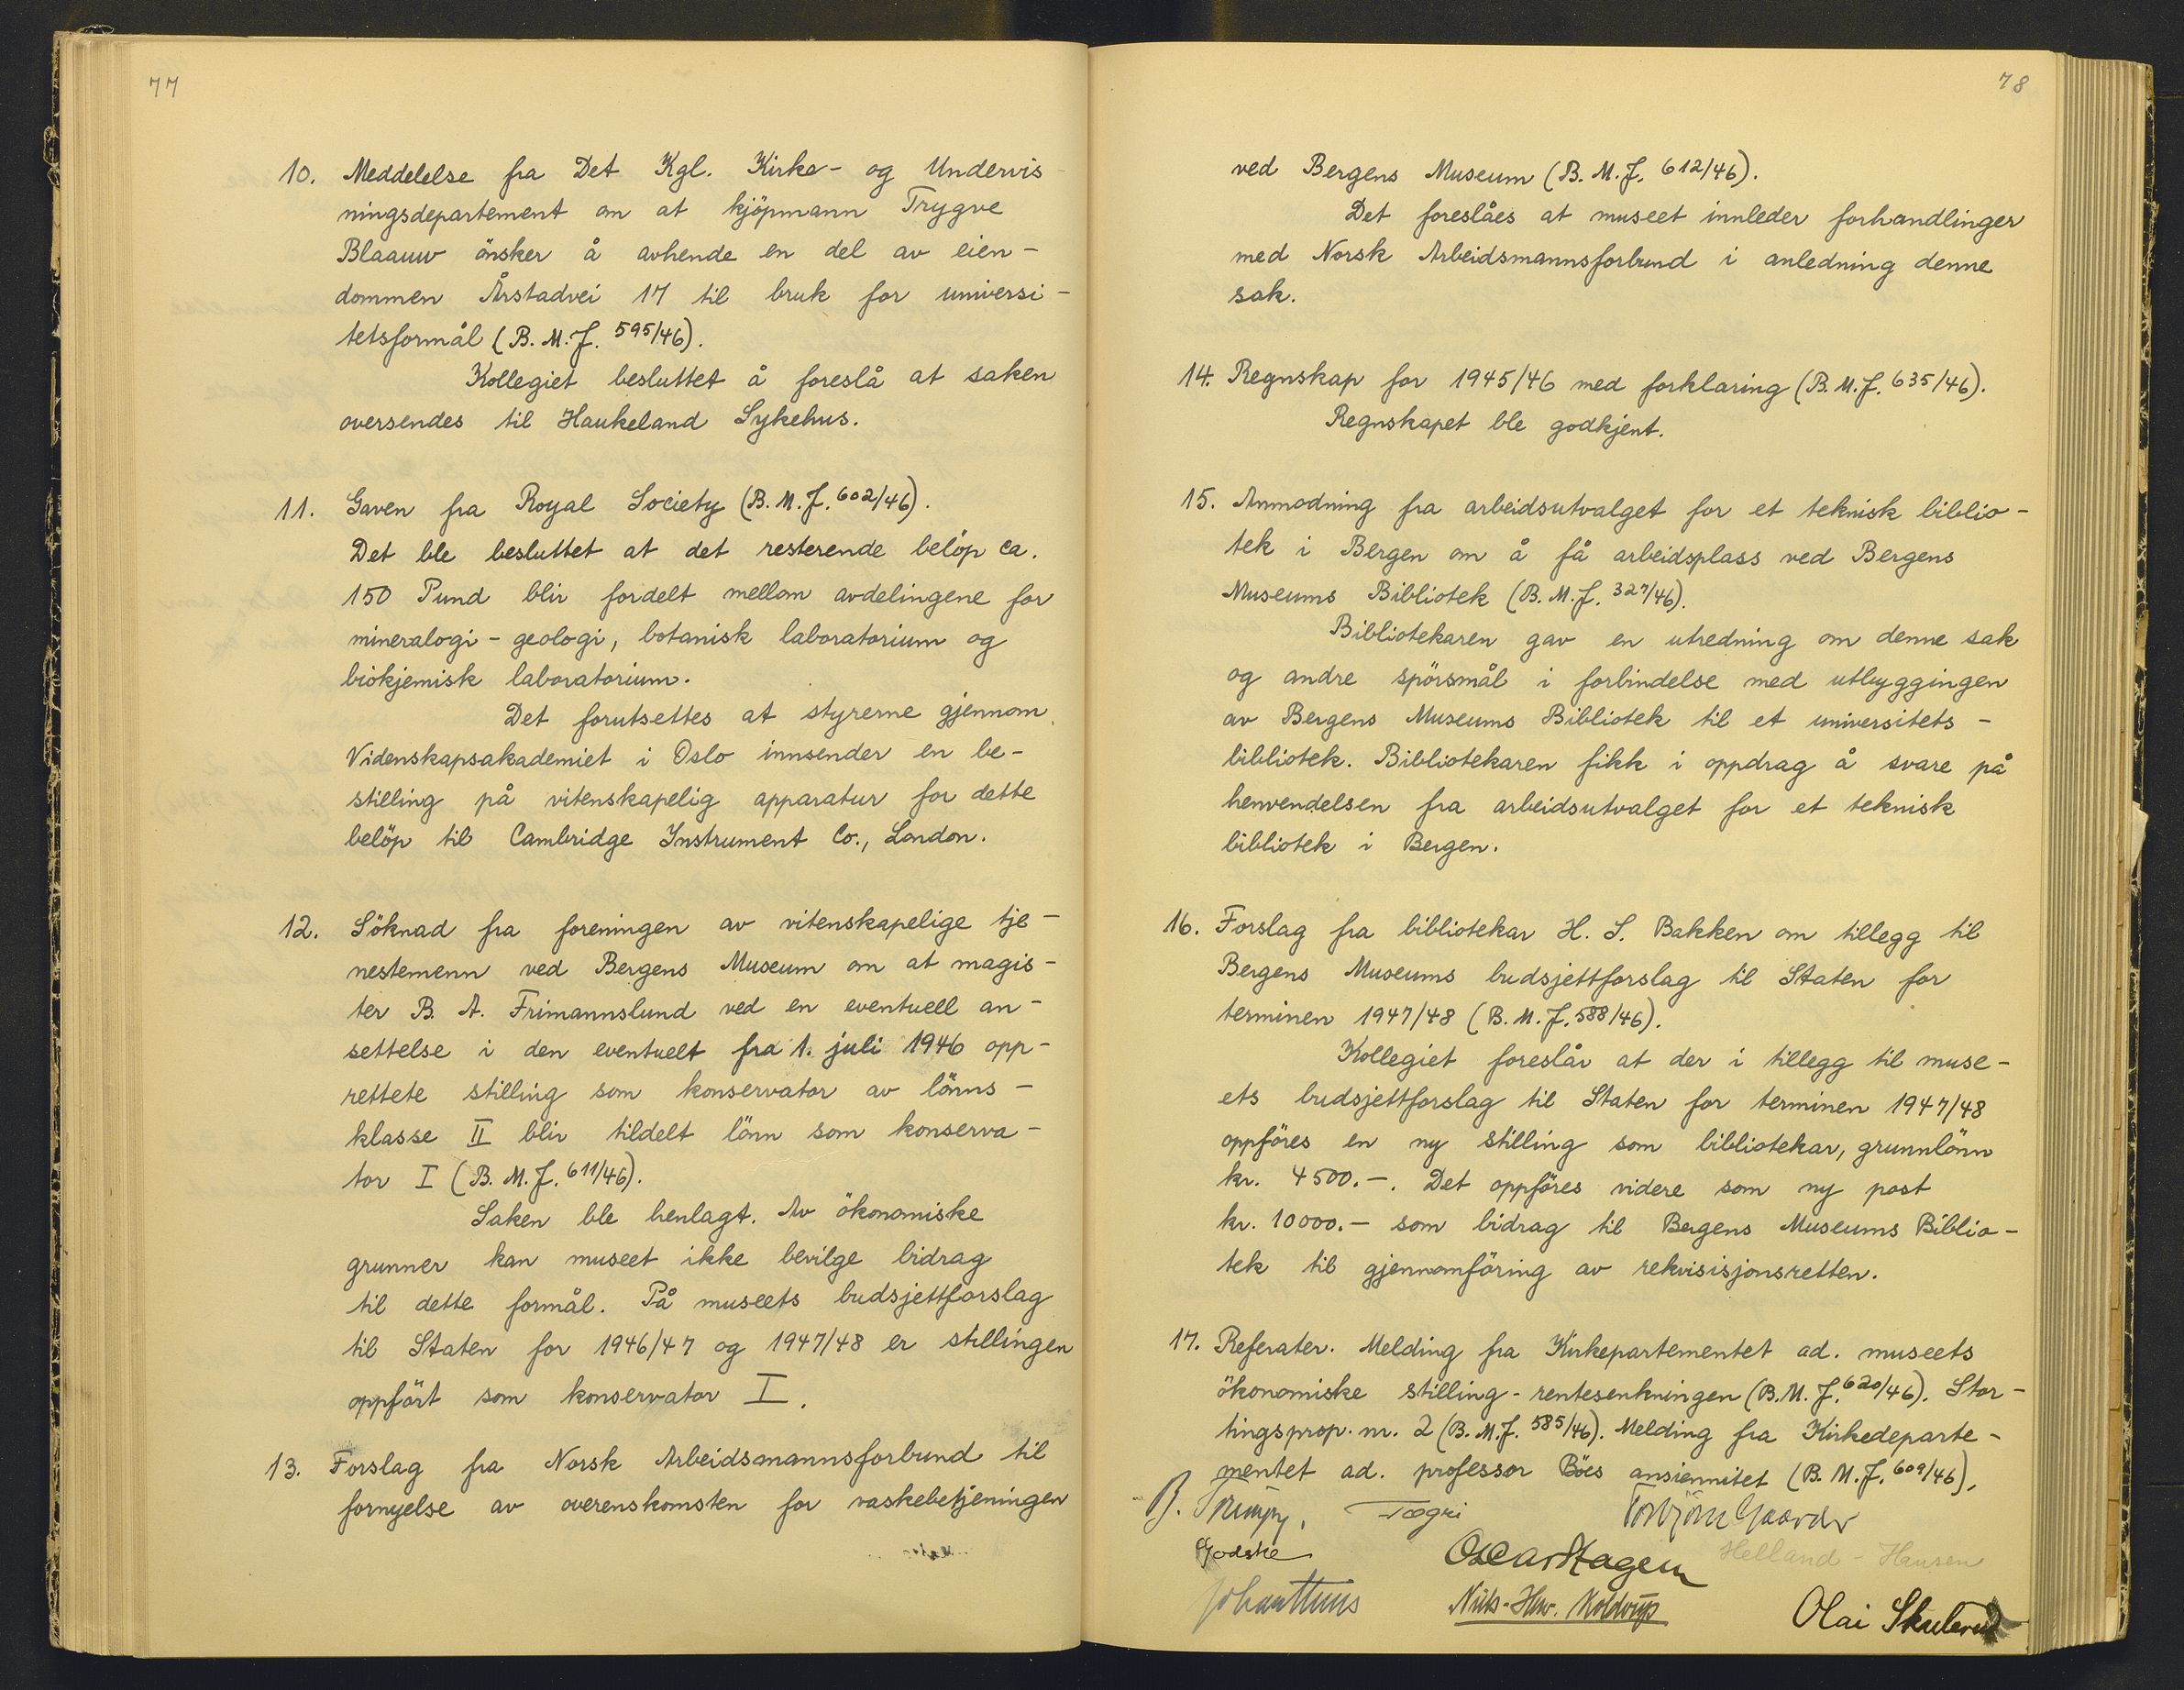 77
10. Meddelelse fra Det Kgl. Kirke- og Undervis-
ningsdepartement om at kjöpmann Trygve
Blaauw önsker å avhende en del av eien-
dommen Årstadvei 17 til bruk for universi-
tetsformål (B. M. J. 595/46).
Kollegiet besluttet å foreslå at saken
oversendes til Haukeland Sykehus.
11. Gaven fra Royal Society (B. M. J. 602/46).
Det ble besluttet at det resterende belöp ca.
150 Pund blir fordelt mellom avdelingene for
mineralogi - geologi, botanisk laboratorium og
biokjemisk laboratorium.
Det forutsettes at styrerne gjennom
Videnskapsakademiet i Oslo innsender en be-
stilling på vitenskapelig apparatur for dette
belöp til Cambridge Instrument Co., London.
12. Söknad fra foreningen av vitenskapelige tje-
nestemenn ved Bergens Museum om at magis-
ter B. A. Frimannslund ved en eventuell an-
settelse i den eventuelt fra 1. juli 1946 opp-
rettete stilling som konservator av lönns-
klasse II blir tildelt lönn som konserva-
tor I (B. M. J. 611/46).
Saken ble henlagt. Av ökonomiske
grunner kan museet ikke bevilge bidrag
til dette formål. På museets budsjettforslag
til Staten for 1946/47 og 1947/48 er stillingen
oppfört som konservator I.
13. Forslag fra Norsk Arbeidsmannsforbund til
fornyelse av overenskomsten for vaskebetjeningen
78
ved Bergens Museum (B. M. J. 612/46).
Det foreslåes at museet innleder forhandlinger
med Norsk Arbeidsmannsforbund i anledning denne
sak.
14. Regnskap for 1945/46 med forklaring (B. M. J. 635/46).
Regnskapet ble godkjent.
15. Anmodning fra arbeidsutvalget for et teknisk biblio-
tek i Bergen om å få arbeidsplass ved Bergens
Museums Bibliotek (B. M. J. 327/46).
Bibliotekaren gav en utredning om denne sak
og andre spörsmål i forbindelse med utbyggingen
av Bergens Museums Bibliotek til et universitets-
bibliotek. Bibliotekaren fikk i oppdrag å svare på
henvendelsen fra arbeidsutvalget for et teknisk
bibliotek i Bergen.
16. Forslag fra bibliotekar H. S. Bakken om tillegg til
Bergens Museums budsjettforslag til Staten for
terminen 1947/48 (B. M. J. 588/46).
Kollegiet foreslår at der i tillegg til muse-
ets budsjettforslag til Staten for terminen 1947/48
oppföres en ny stilling som bibliotekar, grunnlönn
kr. 4500.-. Det oppföres videre som ny post
kr. 10000.- som bidrag til Bergens Museums Biblio-
tek til gjennomföring av rekvisisjonsretten.
17. Referater. Melding fra Kirkepartementet ad. museets
ökonomiske stilling - rentesenkningen (B. M. J. 620/46). Stor-
tingsprop. nr. 2 (B. M. J. 585/46). Melding fra Kirkedeparte-
mentet ad. professor Böes ansiennitet (B. M. J. 609/46).
B. Trumpy, Fægri Torbjörn Gaarder
Godske Oscar Hagem Helland-Hansen
Niels-Henr. Kolderup Olai Skulerud